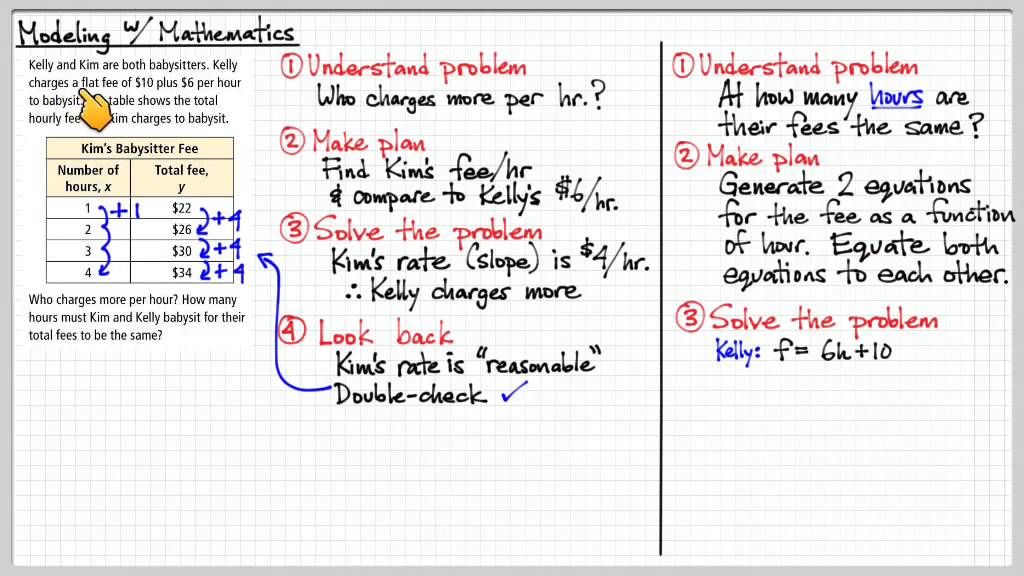 Modeling w/ Mathematics
Kelly and Kim are both babysitters. Kelly
charges a flat fee of $10 plus $6 per hour
to babysit. table shows the total
hourly fee charges to babysit.
Kim's Babysitter Fee
Number of hours, x Total fee, y
1 $22
2 $26
3 $30
4 $34
+1
+4
+4
+4
Who charges more per hour? How many
hours must Kim and Kelly babysit for their
total fees to be the same?
① Understand problem
Who charges more per hr.?
② Make plan
Find Kim's fee/hr
& compare to Kelly's $6/hr.
③ Solve the problem
Kim's rate (slope) is $4/hr.
∴ Kelly charges more
④ Look back
Kim's rate is "reasonable"
Double-check ✓
① Understand problem
At how many hours are
their fees the same?
② Make plan
Generate 2 equations
for the fee as a function
of hour. Equate both
equations to each other.
③ Solve the problem
Kelly: f = 6h+10